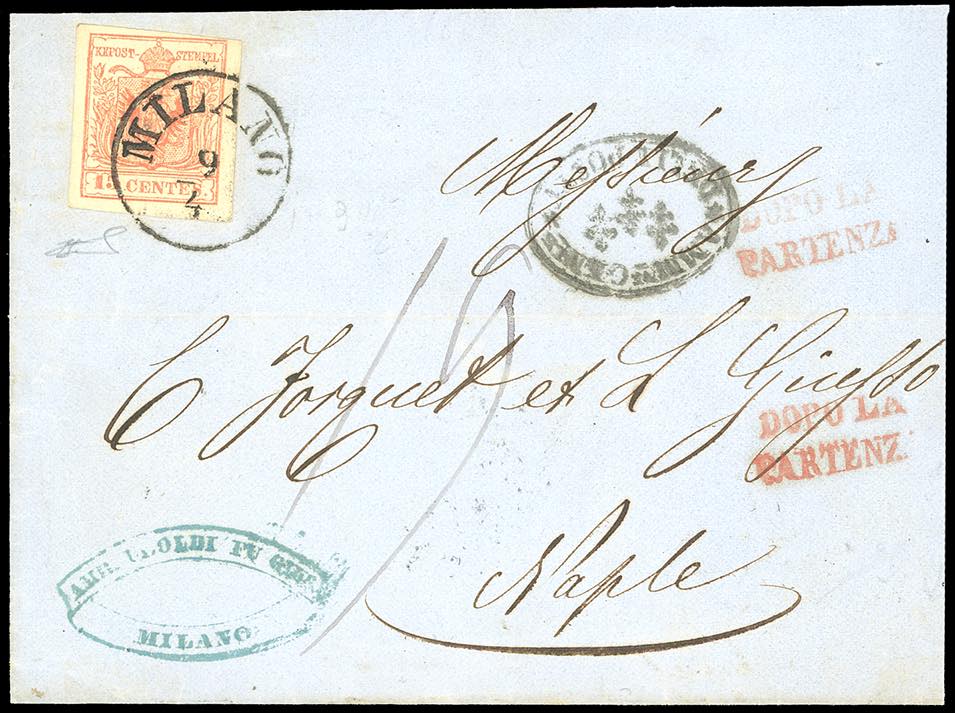 KKPOST-STEMPEL
15 CENTES.
MILANO
9
4
Messieurs
DOPO LA
PARTENZA
15
C Forquet et L Giusso
DOPO LA
PARTENZ
Naple
MILANO